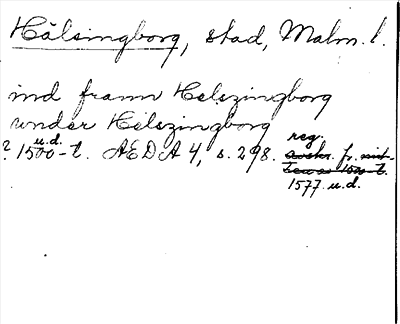 Hälsingborg, stad, Malm. l.
ind framn Helszingborg
under Helszingborg
? 1500-t. u.d. AEDA 4, s. 298. reg. avskr. fr. mit-
ten av 1500 t.
1577 u.d.